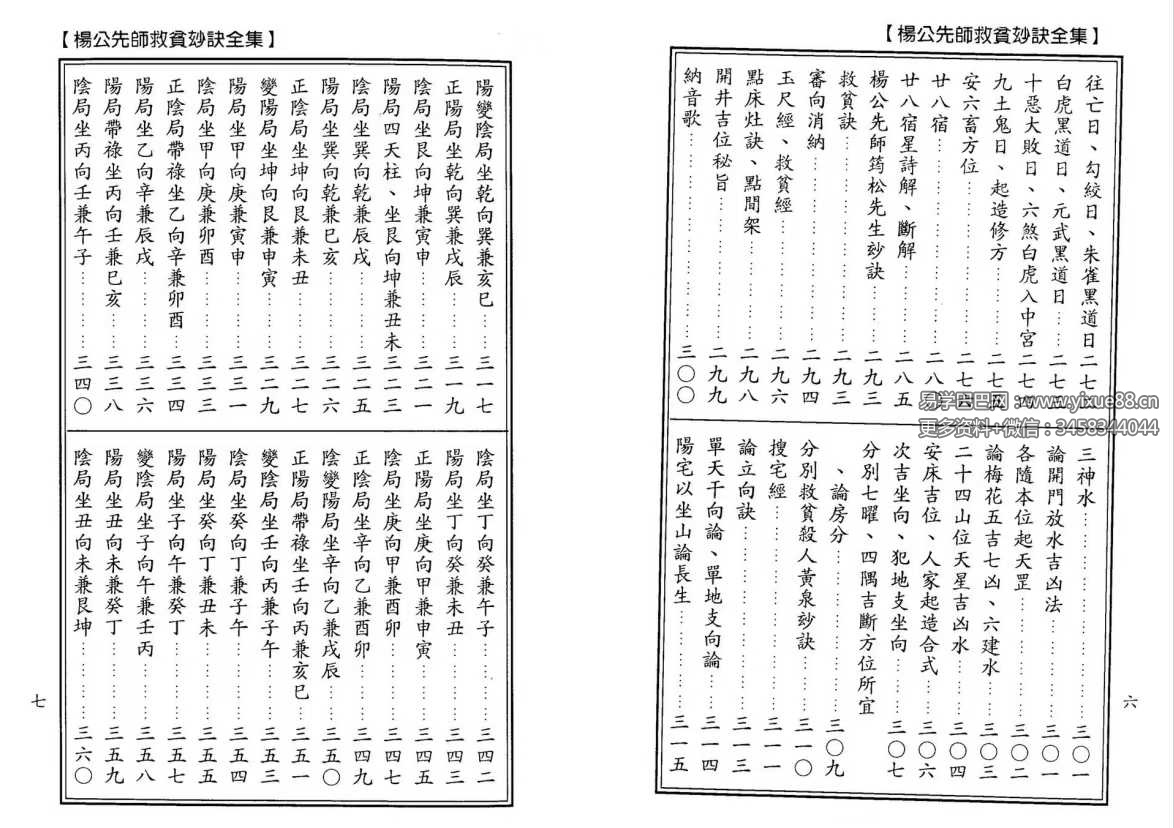 【楊公先師救貧玅訣全集】
往亡日、勾絞日、朱雀黑道日二七
白虎黑道日、元武黑道日……二七三
十惡大敗日、六煞白虎入中宮二七四
九土鬼日、起造修方……二七五
安六畜方位……二七六
廿八宿……二八
廿八宿星詩解、斷解……二八五
楊公先師筠松先生玅訣……二九三
救貧訣……二九三
審向消納……二九四
玉尺經、救貧經……二九六
點床灶訣、點間架……二九八
開井吉位秘旨……二九九
納音歌……三〇〇
三神水……三〇一
論開門放水吉凶法……三〇一
各隨本位起天罡……三〇二
論梅花五吉七凶、六建水……三〇三
二十四山位天星吉凶水……三〇四
安床吉位、人家起造合式……三〇六
次吉坐向、犯地支坐向……三〇七
分別七曜、四隅吉斷方位所宜
、論房分……三〇九
分別救貧殺人黃泉玅訣……三一〇
搜宅經……三一一
論立向訣……三一三
單天干向論、單地支向論……三一四
陽宅以坐山論長生……三一五
六
易学巴巴网：www.yixue88.cn
更多资料+微信：3458344044
【楊公先師救貧玅訣全集】
陽變陰局坐乾向巽兼亥巳……三一七
正陽局坐乾向巽兼戌辰……三一九
陰局坐艮向坤兼寅申……三二一
陽局四天柱、坐艮向坤兼丑未三二三
陰局坐巽向乾兼辰戌……三二五
陽局坐巽向乾兼巳亥……三二六
正陰局坐坤向艮兼未丑……三二七
變陽局坐坤向艮兼申寅……三二九
陽局坐甲向庚兼寅申……三三一
陰局坐甲向庚兼卯酉……三三三
正陰局帶祿坐乙向辛兼卯酉……三三四
陽局坐乙向辛兼辰戌……三三六
陽局帶祿坐丙向壬兼巳亥……三三八
陰局坐丙向壬兼午子……三四〇
陰局坐丁向癸兼午子……三四二
陽局坐丁向癸兼未丑……三四三
正陽局坐庚向甲兼申寅……三四五
陰局坐庚向甲兼酉卯……三四七
正陰局坐辛向乙兼酉卯……三四九
陰變陽局坐辛向乙兼戌辰……三五〇
正陽局帶祿坐壬向丙兼亥巳……三五一
變陰局坐壬向丙兼子午……三五三
陰局坐癸向丁兼子午……三五四
陽局坐癸向丁兼丑未……三五五
陽局坐子向午兼癸丁……三五七
變陰局坐子向午兼壬丙……三五八
陽局坐丑向未兼癸丁……三五九
陰局坐丑向未兼艮坤……三六〇
七